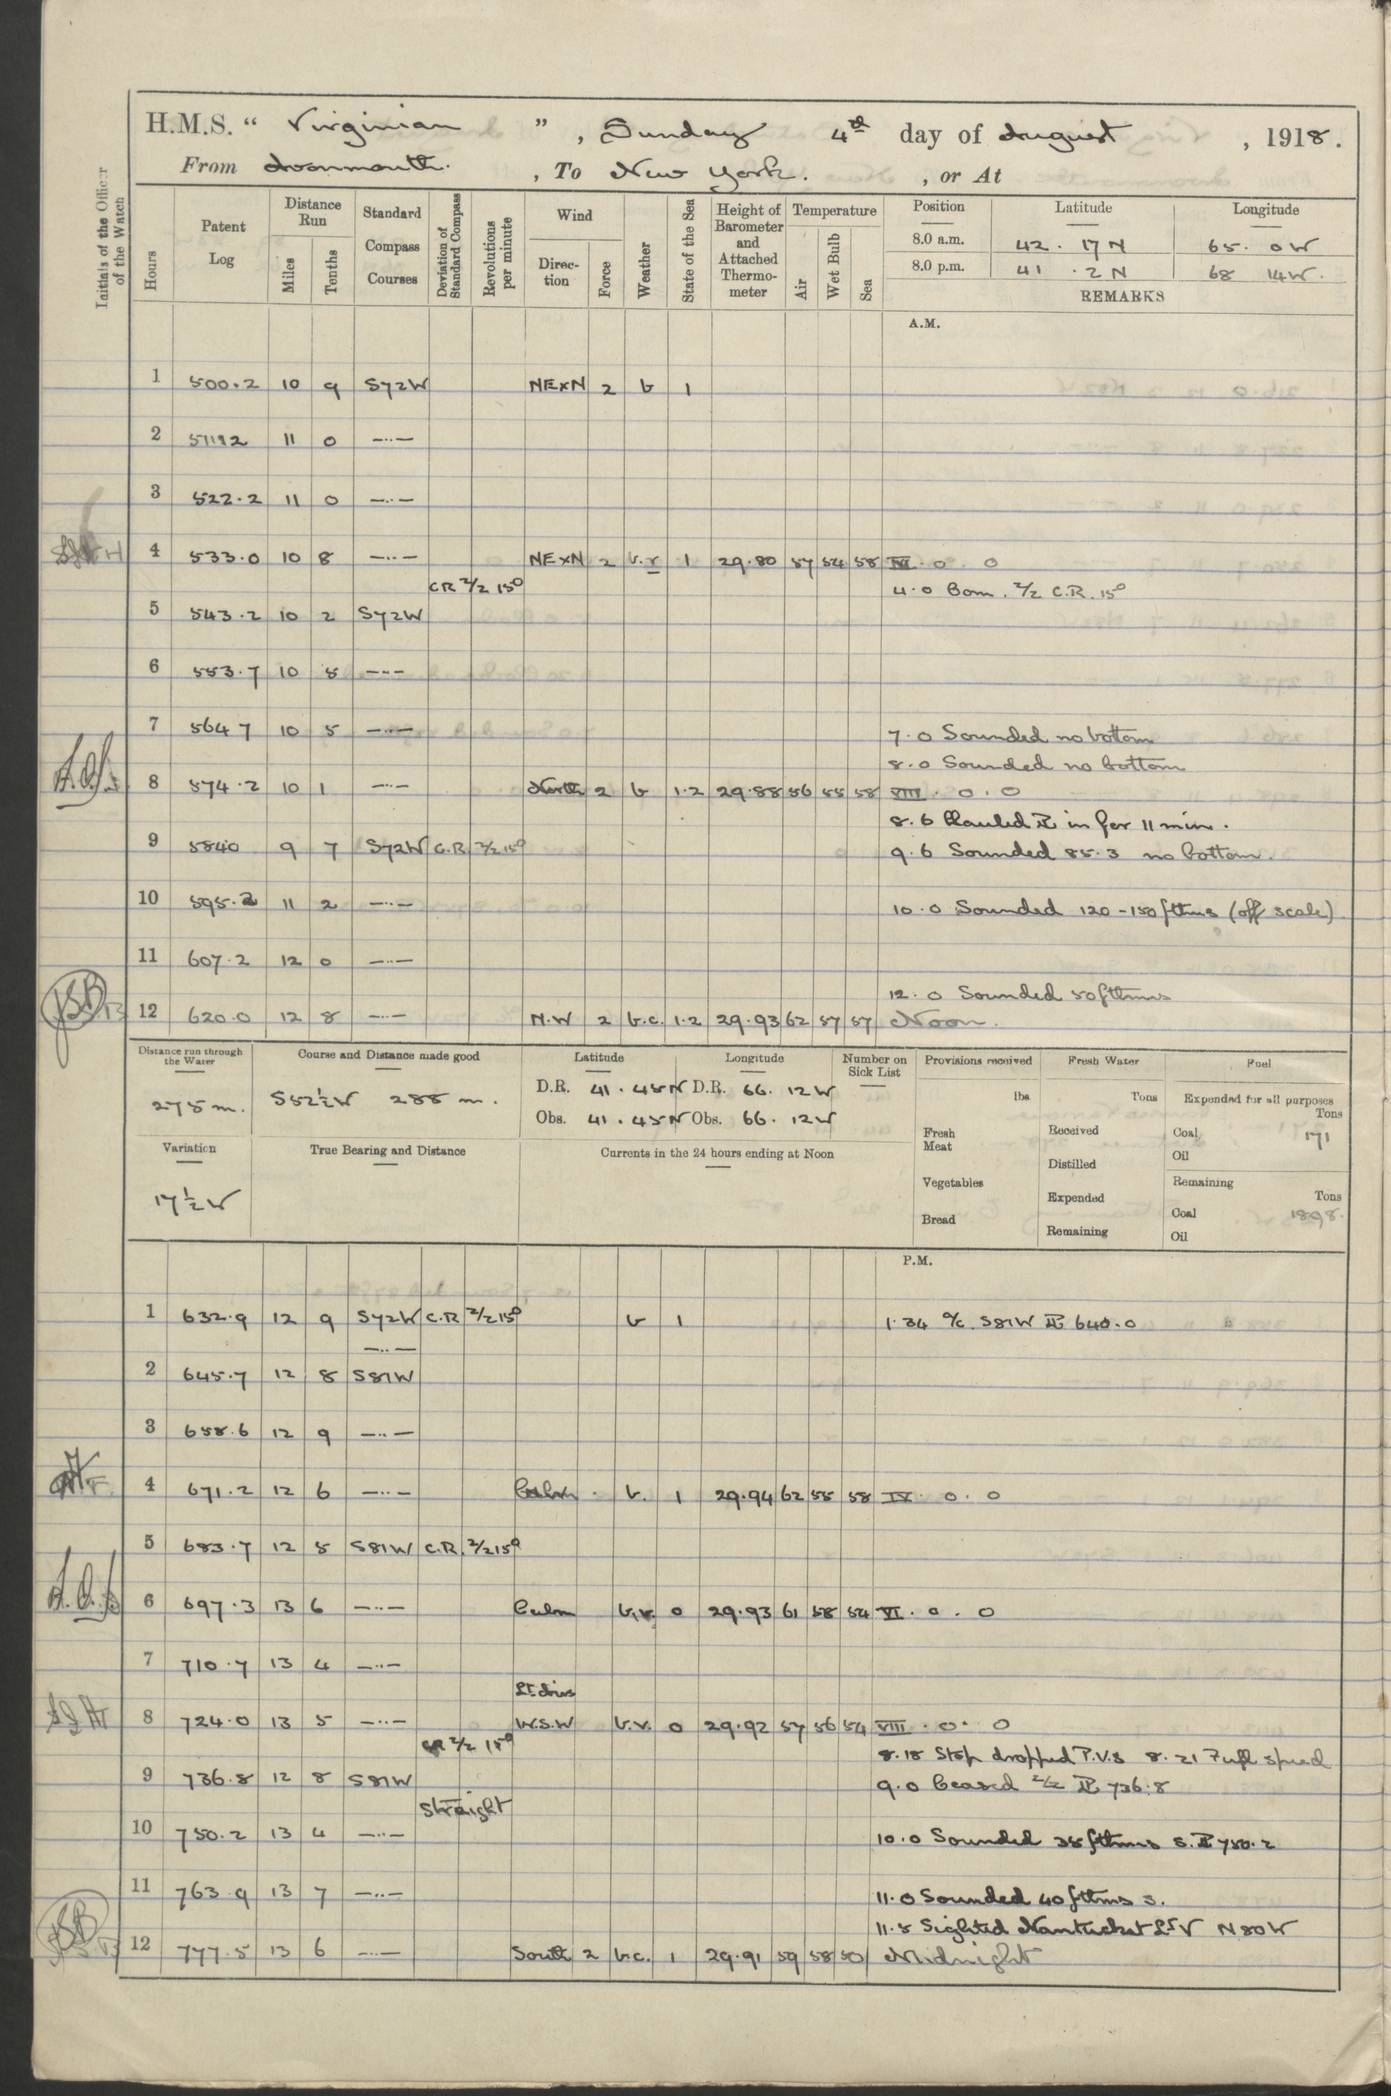 H.M.S. “ Virginian ”, Sunday 4th day of August, 1918.
From Avonmouth. , To New York. , or At
Initials of the Officer of the Watch
Hours
Patent Log
Distance Run
Miles
Tenths
Standard Compass Courses
Deviation of Standard Compass
Revolutions per minute
Wind
Direction
Force
Weather
State of the Sea
Height of Barometer and Attached Thermometer
Temperature
Air
Wet Bulb
Sea
Position Latitude Longitude
8.0 a.m. 42 . 17 N 65 . 0 W
8.0 p.m. 41 . 2 N 68 14 W.
REMARKS
A.M.
1 500.2 10 9 S72W NExN 2 b 1
2 511.2 11 0 —··—
3 522.2 11 0 —··—
4 533.0 10 8 —··— NExN 2 b.v 1 29.80 57 54 58 IV . 0 . 0
CR 2/2 15° 4.0 Com. 2/2 C.R. 15°
5 543.2 10 2 S72W
6 553.7 10 5 —··—
7 564 7 10 5 —··— 7.0 Sounded no bottom
8.0 Sounded no bottom
8 574.2 10 1 —··— North 2 b 1.2 29.88 56 55 58 VIII . 0 . 0
8.6 Hauled PL in for 11 min.
9 5840 9 7 S72W C.R 2/2 15° 9.6 Sounded 85.3 no bottom.
10 595.2 11 2 —··— 10.0 Sounded 120-150 fthms (off scale)
11 607.2 12 0 —··—
12.0 Sounded 50 fthms
12 620.0 12 8 —··— N.W 2 b.c. 1.2 29.93 62 57 57 Noon.
Distance run through the Water
275 m.
Course and Distance made good
S52½W 288 m.
Latitude Longitude
D.R. 41 . 45 N D.R. 66 . 12 W
Obs. 41 . 45 N Obs. 66 . 12 W
Number on Sick List
Provisions received
lbs
Fresh Meat
Vegetables
Bread
Fresh Water
Tons
Received
Distilled
Expended
Remaining
Fuel
Expended for all purposes
Tons
Coal 171
Oil
Remaining
Tons
Coal 1898.
Oil
Variation
17½ W
True Bearing and Distance
Currents in the 24 hours ending at Noon
P.M.
1 632.9 12 9 S72W C.R 2/2 15° b 1 1.34 a/c. S81W PL 640.0
—··—
2 645.7 12 8 S81W
3 658.6 12 9 —··—
4 671.2 12 6 —··— Calm . b. 1 29.94 62 55 58 IV . 0 . 0
5 683.7 12 5 S81W C.R. 2/2 15°
6 697.3 13 6 —··— Calm b.v. 0 29.93 61 58 54 VI . 0 . 0
7 710.7 13 4 —··—
Lt. airs
8 724.0 13 5 —··— W.S.W b.v. 0 29.92 57 56 54 VIII . 0 . 0
CR 2/2 15° 8.18 Stop dropped P.V.s 8.21 Full speed
9 736.8 12 8 S81W 9.0 Ceased 2/2 PL 736.8
Straight
10 750.2 13 4 —··— 10.0 Sounded 38 fthms S. PL 750.2
11 763.9 13 7 —··— 11.0 Sounded 40 fthms S.
11.5 Sighted Nantucket Lt V N80W
12 777.5 13 6 —··— South 2 b.c. 1 29.91 59 58 50 Midnight